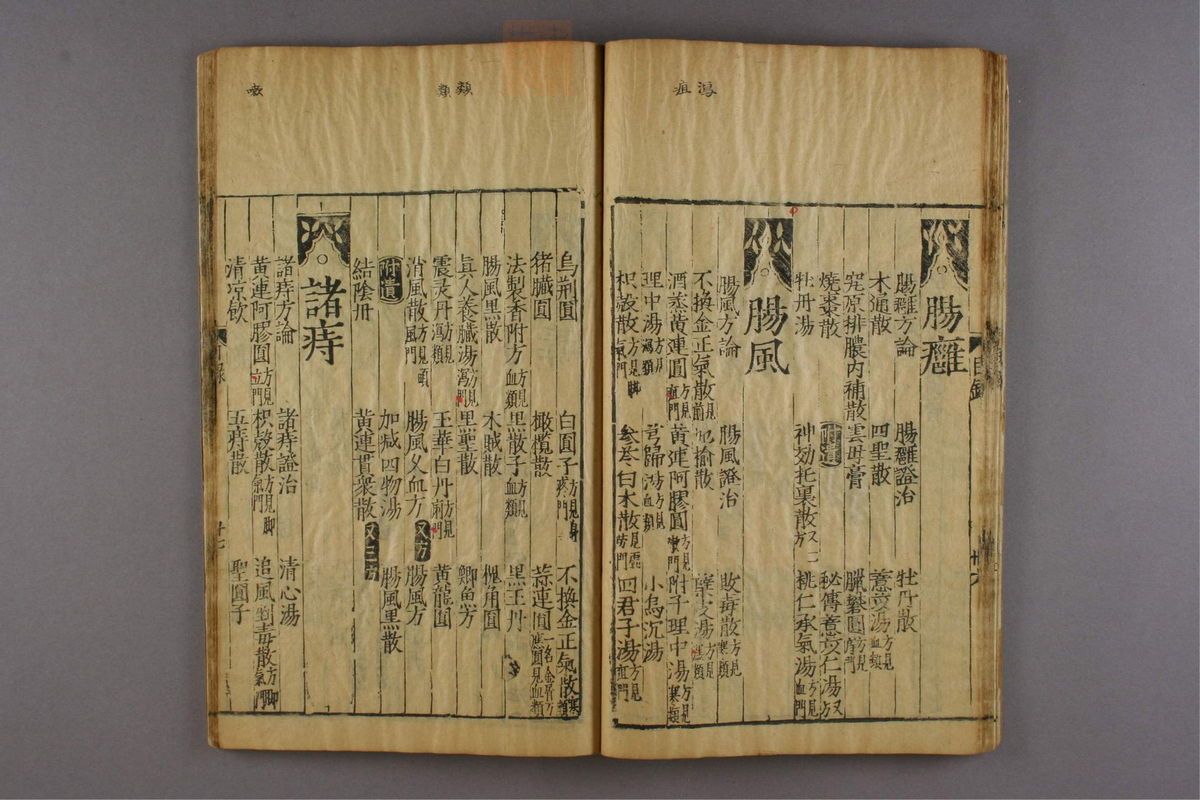 瀉
疽
腸癰
腸癰方論 腸癰證治 牡丹散
木通散 四聖散 薏苡湯方見血類
究原排膿內補散 雲母膏 臘礬圓方見前門
燒棗散 附遺 秘傳薏苡仁湯方
牡丹湯 神効托裏散方又一 桃仁承氣湯方見血門
腸風
腸風方論 腸風證治 敗毒散方見寒類
不換金正氣散方見前 地榆散 蘗皮湯方見瀉類
酒蒸黃連圓方見疸門 黃連阿膠圓方見嗽門 附子理中湯方見寒類
理中湯方見瀉類 芎歸湯方見血類 小烏沉湯
枳殼散方見脚氣門 參苓白朮散方見虛勞門 四君子湯方見疸門
目錄
十六
類
類
嗽
烏荆圓 白圓子方見身疼門 不換金正氣散寒類
猪臟圓 橄欖散 蒜連圓一名金屑万應圓見血類
法製香附方方見血類 黑散子方見血類 黑玉丹
腸風黑散 木賊散 槐角圓
眞人養臟湯方見瀉門 黑聖散 鯽魚方
震灵丹方見瀉類 玉華白丹方見前門 黃龍圓
消風散方見頭風門 腸風又血方 又方 腸風方
附遺 加减四物湯 腸風黑散
結陰丹 黃連貫衆散 又三方
諸痔
諸痔方論 諸痔證治 清心湯
黃連阿膠圓方見立門 枳殼散方見脚氣門 追風毒散方脚氣門
清凉飲 五痔散 聖圓子
目錄
十七